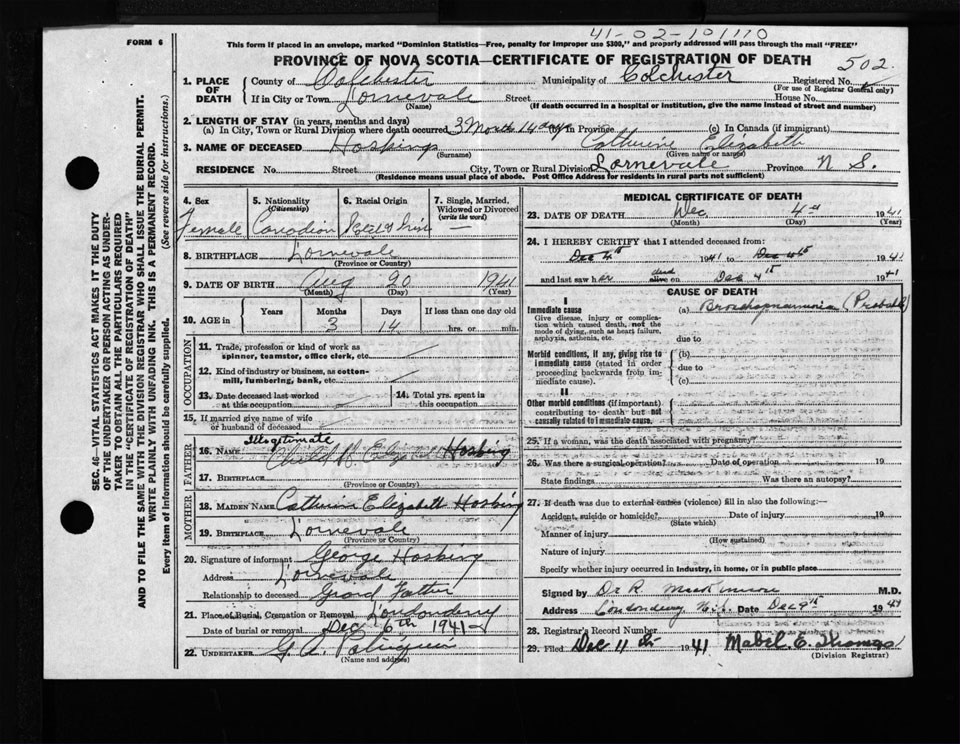 41-02-101110
FORM 6
This form if placed in an envelope, marked "Dominion Statistics—Free, penalty for improper use $300," and properly addressed will pass through the mail "FREE"
PROVINCE OF NOVA SCOTIA—CERTIFICATE OF REGISTRATION OF DEATH
502
1. PLACE OF DEATH
County of Colchester Municipality of Colchester Registered No.
(For use of Registrar General only)
If in City or Town Lornevale Street House No.
(Name) (If death occurred in a hospital or institution, give the name instead of street and number)
2. LENGTH OF STAY (in years, months and days)
(a) In City, Town or Rural Division where death occurred 3 Month 14 days (b) In Province (c) In Canada (if immigrant)
3. NAME OF DECEASED Hosking Catherine Elizabeth
(Surname) (Given name or names)
RESIDENCE No. Street City, Town or Rural Division Lornevale Province N S.
(Residence means usual place of abode. Post Office Address for residents in rural parts not sufficient)
4. Sex
Female
5. Nationality
(Citizenship)
Canadian
6. Racial Origin
7. Single, Married, Widowed or Divorced
(write the word)
—
8. BIRTHPLACE Lornevale
(Province or Country)
9. DATE OF BIRTH Aug 20 1941
(Month) (Day) (Year)
10. AGE in
Years Months Days If less than one day old
3 14 hrs. or min.
OCCUPATION
11. Trade, profession or kind of work as spinner, teamster, office clerk, etc.
12. Kind of industry or business, as cotton-mill, lumbering, bank, etc.
13. Date deceased last worked at this occupation
14. Total yrs. spent in this occupation
15. If married give name of wife or husband of deceased
FATHER
Illegitimate
16. NAME Child of Hosking
17. BIRTHPLACE
(Province or Country)
MOTHER
18. MAIDEN NAME Catherine Elizabeth Hosking
19. BIRTHPLACE Lornevale
(Province or Country)
20. Signature of informant George Hosking
Address Lornevale
Relationship to deceased Grand Father
21. Place of Burial, Cremation or Removal Londonderry
Date of burial or removal Dec 6th 1941
22. UNDERTAKER G. A.
(Name and address)
MEDICAL CERTIFICATE OF DEATH
23. DATE OF DEATH Dec 4th 1941
(Month) (Day) (Year)
24. I HEREBY CERTIFY that I attended deceased from:
Dec 4th 1941 to Dec 4th 1941
and last saw her dead alive on Dec 4th 1941
CAUSE OF DEATH
I
Immediate cause
Give disease, injury or complication which caused death, not the mode of dying, such as heart failure, asphyxia, asthenia, etc.
(a) Bronchopneumonia (Probable)
due to
Morbid conditions, if any, giving rise to immediate cause (stated in order proceeding backwards from immediate cause).
(b)
due to
(c)
II
Other morbid conditions (if important) contributing to death but not causally related to immediate cause.
25. If a woman, was the death associated with pregnancy?
26. Was there a surgical operation? Date of operation 19
State findings Was there an autopsy?
27. If death was due to external causes (violence) fill in also the following:—
Accident, suicide or homicide? Date of injury 19
(State which)
Manner of injury
(How sustained)
Nature of injury
Specify whether injury occurred in industry, in home, or in public place
Signed by Dr R M.D.
Address Londonderry N.S. Date Dec 9th 1941
28. Registrar's Record Number
29. Filed Dec 11th 1941 Mabel E. Thomas
(Division Registrar)
SEC. 46—VITAL STATISTICS ACT MAKES IT THE DUTY
OF THE UNDERTAKER OR PERSON ACTING AS UNDER-
TAKER TO OBTAIN ALL THE PARTICULARS REQUIRED
IN THE "CERTIFICATE OF REGISTRATION OF DEATH"
AND TO FILE THE SAME WITH THE DIVISION REGISTRAR WHO SHALL ISSUE THE BURIAL PERMIT.
WRITE PLAINLY WITH UNFADING INK. THIS IS A PERMANENT RECORD.
Every item of information should be carefully supplied. (See reverse side for instructions.)